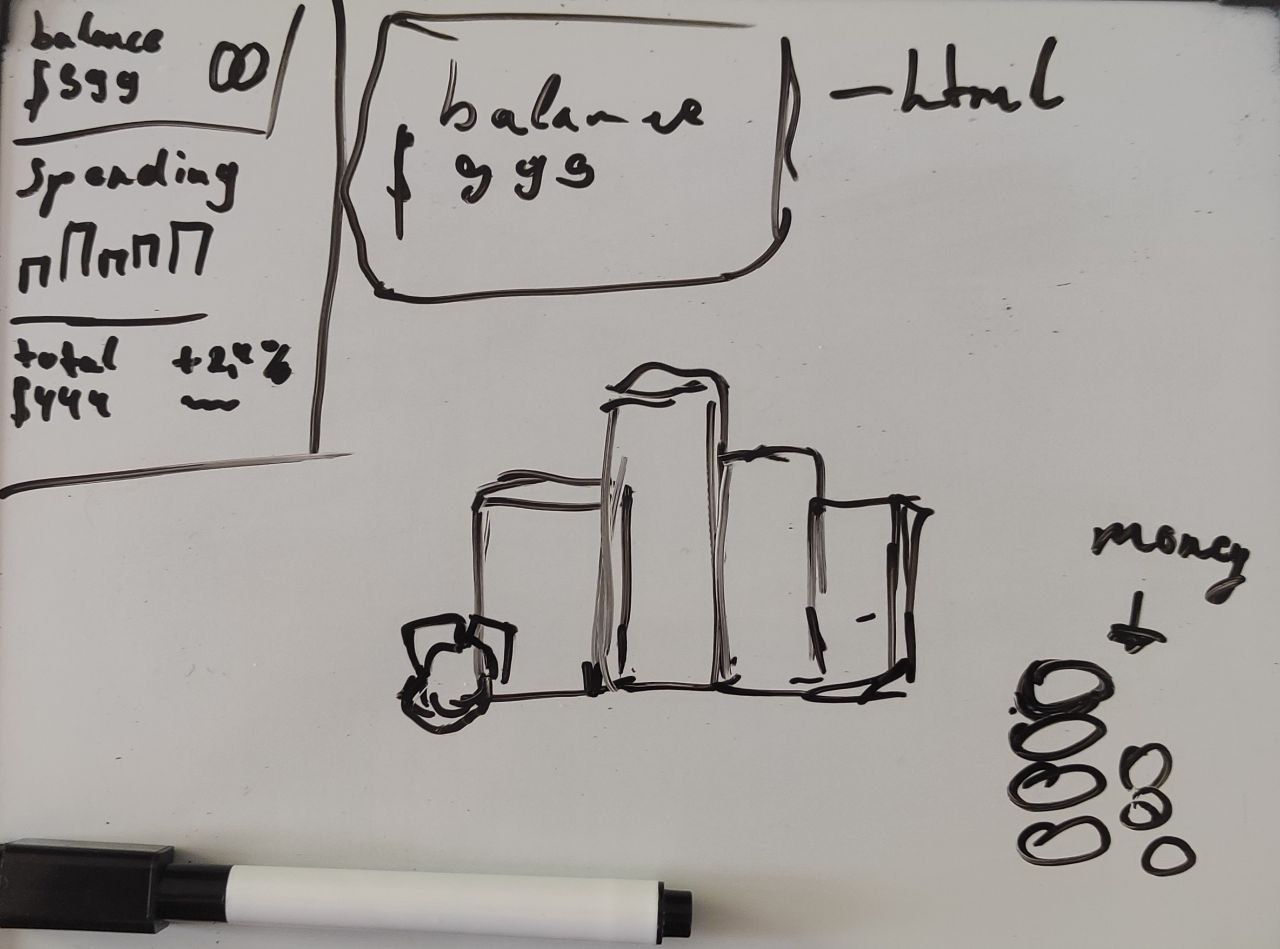 balance
$399
Spending
total +2,4%
$444
balance
$ 999
- html
money